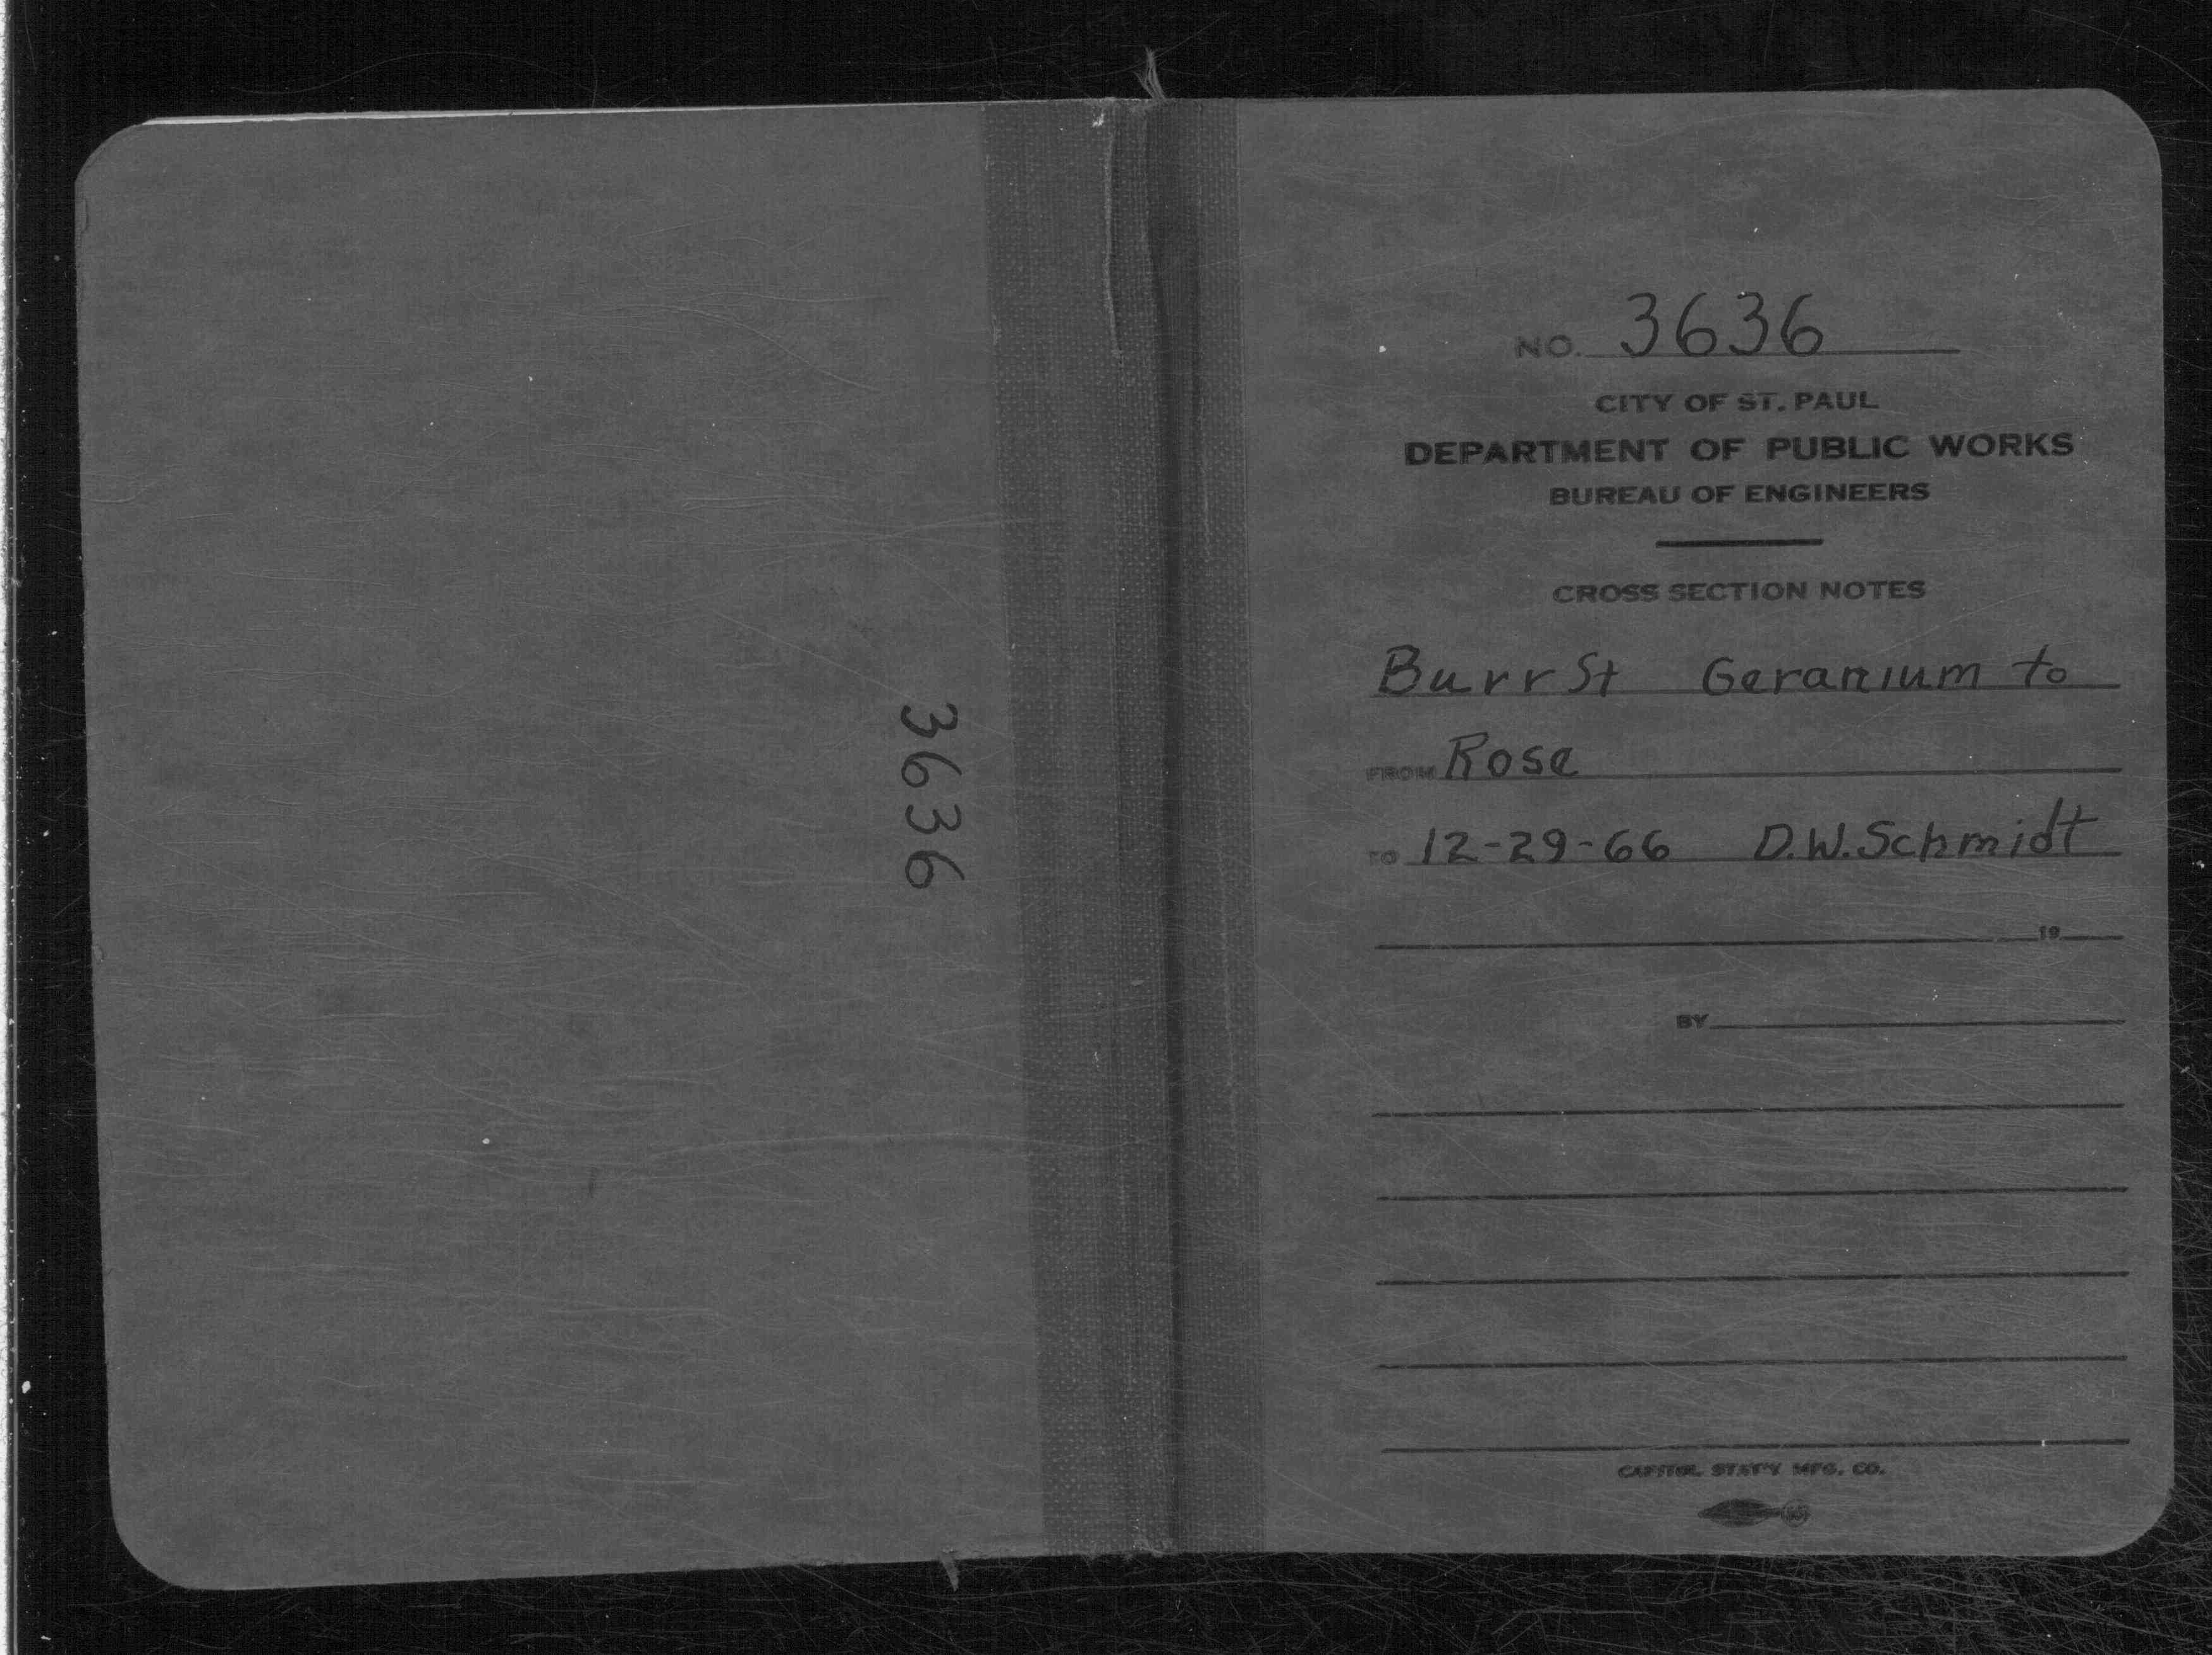 3636
NO. 3636
CITY OF ST. PAUL
DEPARTMENT OF PUBLIC WORKS
BUREAU OF ENGINEERS
CROSS SECTION NOTES
Burr St Geranium to
FROM Rose
TO 12-29-66 D.W. Schmidt
19
BY
CAPITOL STAT'Y MFG. CO.